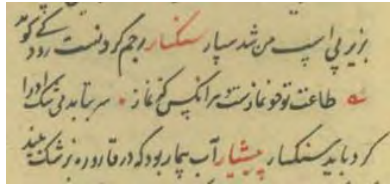 بزیر پی اسپ من شد سپار سنگسار رجم کردنست رود کے گو
طاعت تو چو نمازست هر انکس کز نماز سر بتابد بی شک او را
کرد باید سنگسار پیشیار آب بیمار بود که در قاروره پزشک بیند